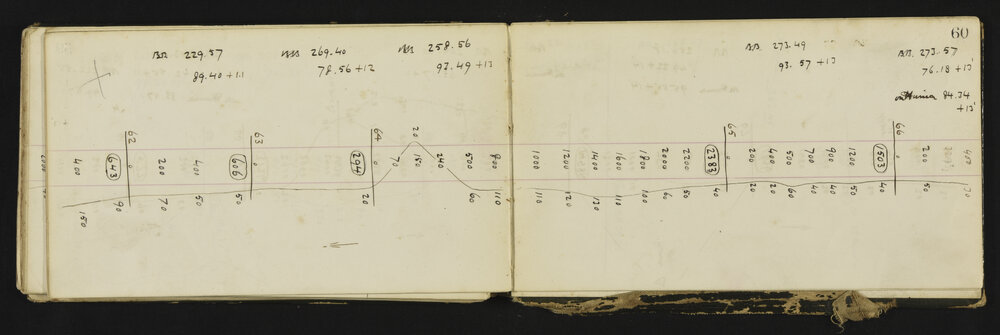 60
229.37
89.40 +11
269.40
78.56 +12
258.56
93.49 +13
273.49
93.57 +13
273.57
76.18 +13
84.34
+13
62
63
64
20
65
66
400
643
0
200
400
606
0
294
0
70
150
240
500
800
1000
1200
1400
1600
1800
2000
2200
2383
0
200
400
500
700
900
1200
1503
0
200
400
150
90
70
50
50
20
60
110
110
120
110
100
60
50
40
20
20
60
40
40
50
40
50